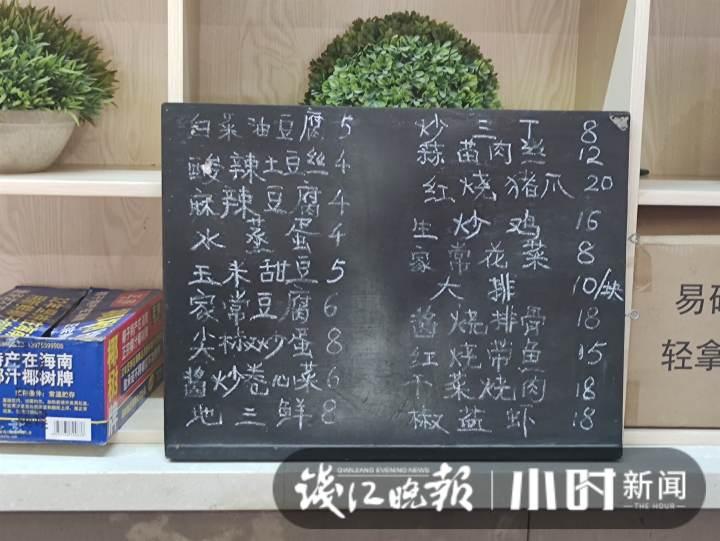 白菜油豆腐 5
酸辣土豆丝 4
麻辣豆腐 4
水蒸蛋 4
玉米甜豆 5
家常豆腐 6
尖椒炒蛋 8
酱炒卷心菜 6
地三鲜 8
炒三丁 8
蒜苗肉丝 12
红烧猪爪 20
生炒鸡 16
家常花菜 8
大排 10/块
酱烧排骨 18
红烧带鱼 15
干菜烧肉 18
椒盐虾 18
特产在海南
椰汁椰树牌
易碎
轻拿
QIANJIANG EVENING NEWS
钱江晚报
小时新闻
THE HOUR